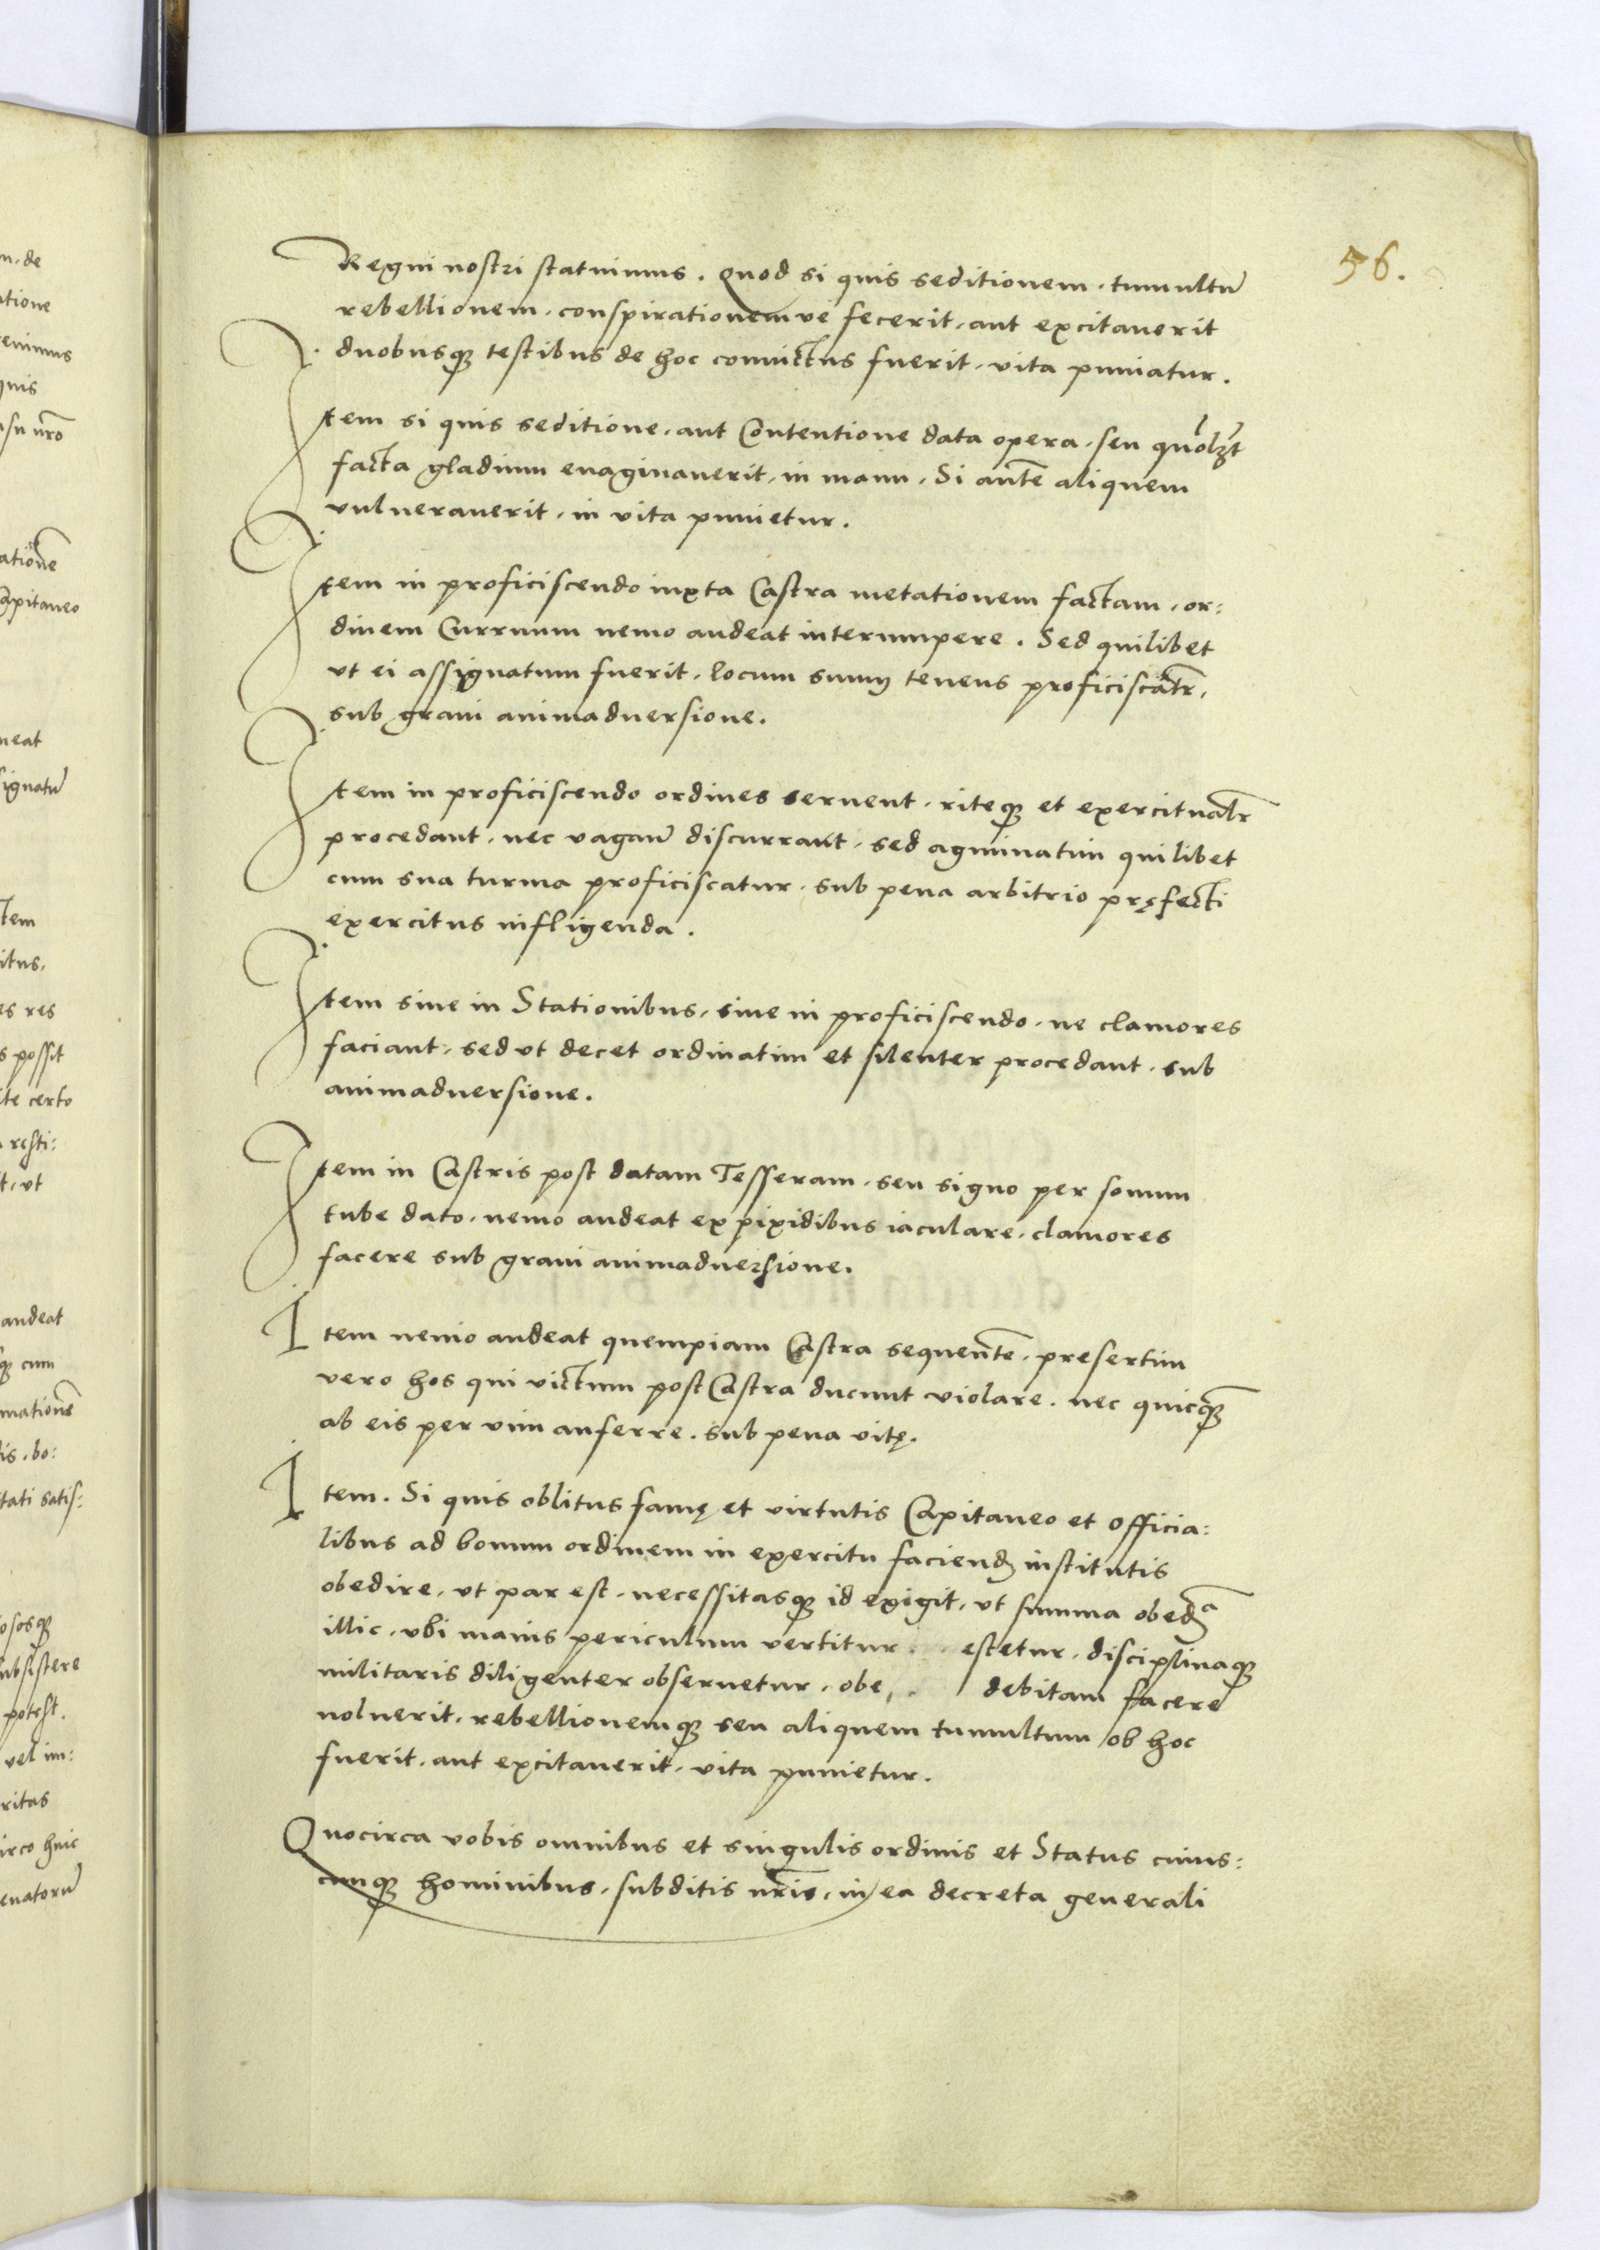 56.
Regni nostri statuimus. Quod si quis seditionem, tumultū
rebellionem, conspirationem ve fecerit, aut excitauerit
duobusq₃ testibus de hoc conuictus fuerit, vita puniatur.
Item si quis seditione, aut Contentione data opera, seu
facta gladium euaginauerit, in manu, Si autē aliquem
vulnerauerit, in vita punietur.
Item in proficiscendo iuxta Castra metationem factam, or:
dinem Curruum nemo audeat interrumpere. Sed quilibet
ut ei assignatum fuerit, locum suum tenens proficiscatr,
sub graui animaduersione.
Item in proficiscendo ordines seruent, riteq₃ et exercitualr
procedant, nec vagaū discurrant, sed agminatim quilibet
cum sua turma proficiscatur, sub pena arbitrio pręfecti
exercitus infligenda.
Item siue in Stationibus, siue in proficiscendo, ne clamores
faciant, sed ut decet ordinatim et silenter procedant, sub
animaduersione.
Item in Castris post datam Tesseram, seu signo per sonum
tube dato, nemo audeat ex pixidibus iaculare, clamores
facere sub graui animaduersione.
Item nemo audeat quempiam Castra sequentē, presertim
vero hos qui victum post Castra ducunt violare, nec quicq₃
ab eis per vim auferre, sub pena vitę.
Item. Si quis oblitus famę et virtutis Capitaneo et officia:
libus ad bonum ordinem in exercitu faciend institutis
obedire, ut par est, necessitasq₃ id exigit, ut summa obeda
illic, ubi maius periculum vertitur estetur, disciplinaq₃
militaris diligenter obseruetur, obe debitam facere
noluerit, rebellionemq₃ seu aliquem tumultum ob hoc
fuerit, aut excitauerit, vita punietur.
Quocirca vobis omnibus et singulis ordinis et Status cuius:
cunq₃ hominibus, subditis nr̄is, in ea decreta generali